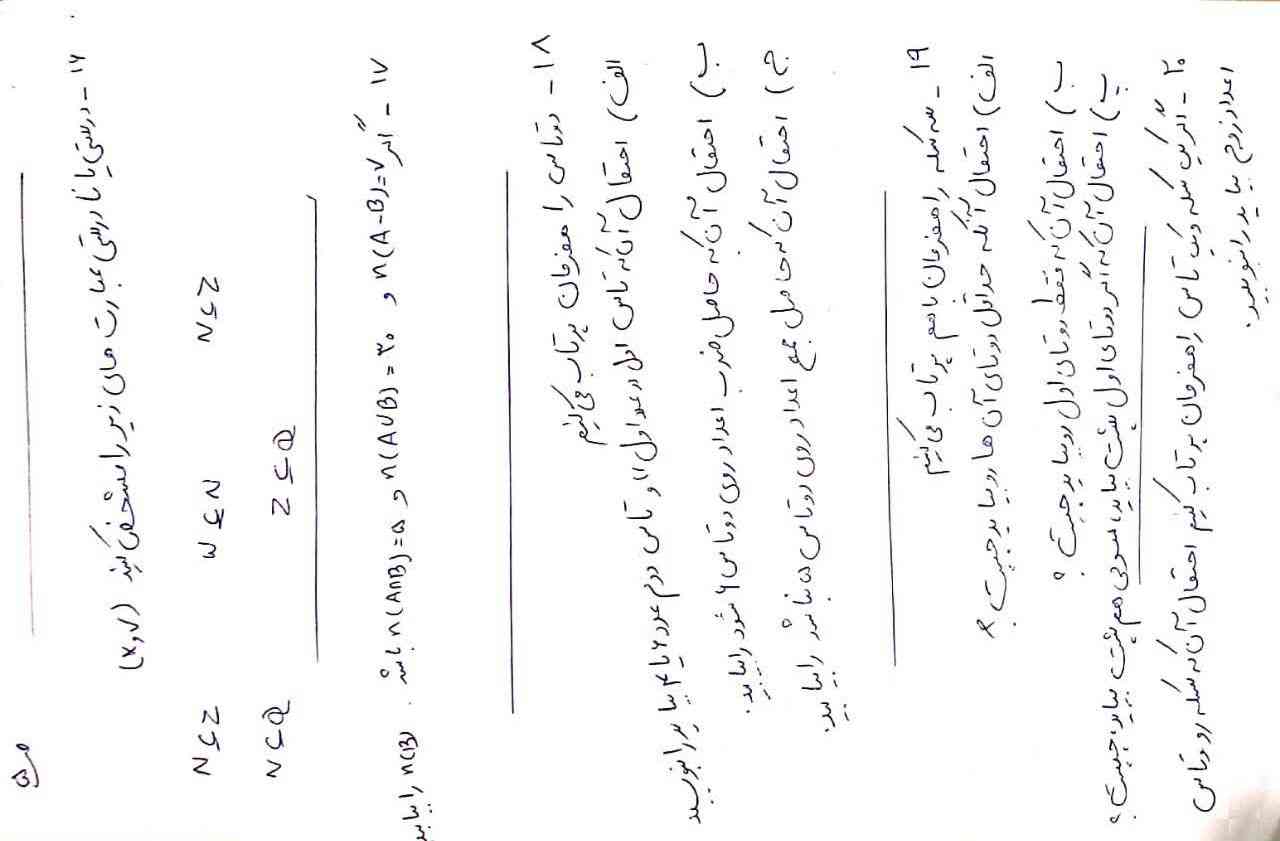 ص۵
۱۶ - درستی یا نادرستی عبارت های زیر را مشخص کنید (✓ و ×)
N ⊆ Z W ⊆ N N ⊆ Z
Z ⊆ Q N ⊆ Q
۱۷ - اگر n(A-B)=۷ و n(A∪B)=۳۰ و n(A∩B)=۵ باشد . n(B) را بیابید
۱۸ - دو تاس را همزمان پرتاب می کنیم
الف) احتمال آن که تاس اول عدد اول و تاس دوم عدد ۲ یا ۴ بیاید را بنویسید
ب) احتمال آن که حاصل ضرب اعداد روی دو تاس ۶ شود را بیابید.
ج) احتمال آن که حاصل جمع اعداد روی دو تاس ۵ نباشد را بیابید.
۱۹ - سه سکه را همزمان باهم پرتاب می کنیم
الف) احتمال آنکه حداقل دوتای آن ها رو بیاید چیست ؟
ب) احتمال آن که فقط دوتای اول رو بیاید چیست ؟
پ) احتمال آن که اگر دوتای اول پشت بیاید، سومی هم پشت بیاید چیست ؟
۲۰ - اگر یک سکه و یک تاس را همزمان پرتاب کنیم احتمال آن که سکه رو و تاس
اعداد زوج بیاید را بنویسید.